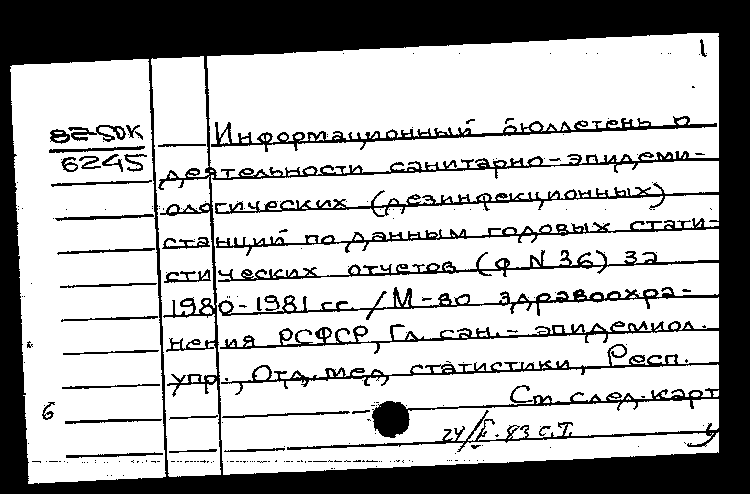 1
82-5DK
6245
Информационный бюллетень о
деятельности санитарно-эпидеми-
ологических (дезинфекционных)
станций по данным годовых стати-
стических отчетов (ф N 36) за
1980-1981 гг. / М-во здравоохра-
нения РСФСР, Гл. сан.- эпидемиол.
упр., Отд. мед. статистики, Респ.
См. след. карт
6
24/II. 83 С.Т.